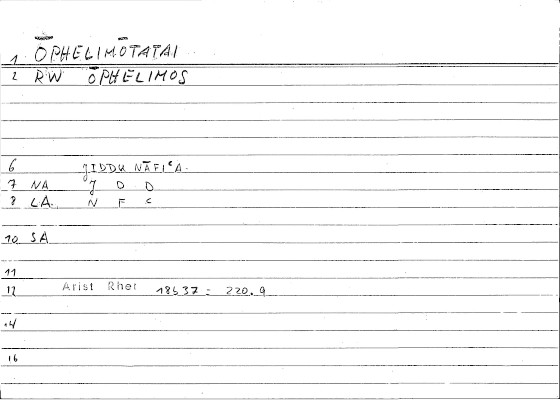 1 ŌPHELIMŌTATAI
2 RW ŌPHELIMOS
6 ǦIDDU NĀFIʿA.
7 NA Ǧ D D
8 LA. N F ʿ
10 SA
11
12 Arist Rhet 18637 : 220.9
14
16